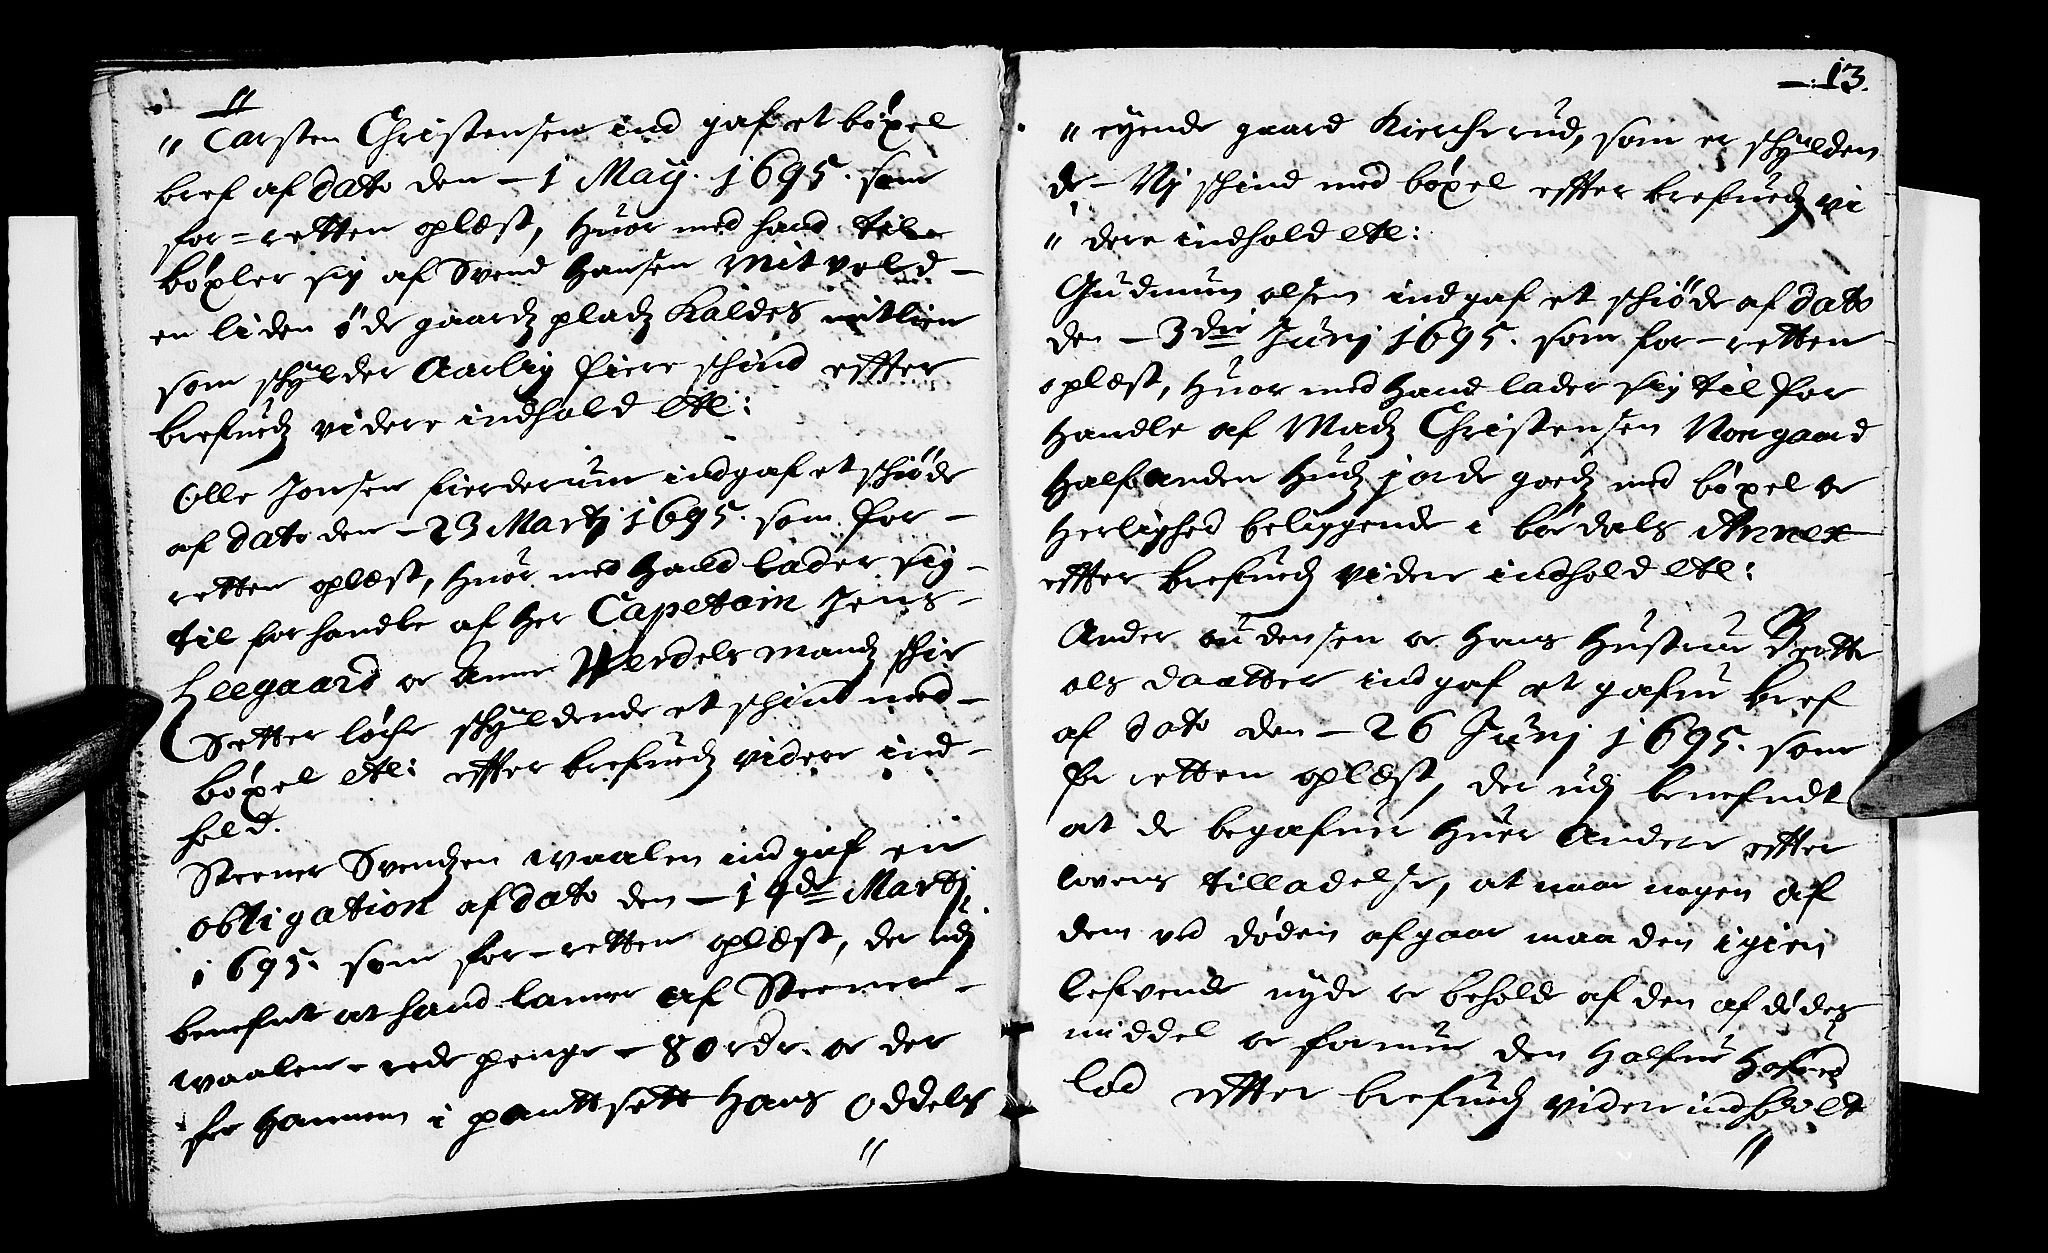 "
" Carsten Christensen ind gaf et bøxel
bref af dato den – 1 Maÿ. 1695. som
for=retten oplæst, huor med hand til
bøxler sig af Svend Hansen Mitvold –
en liden øde gaardz pladz Kaldes mitlien
som schylder Aarlig fiere schind effter
brefuedz videre indhold etc:
Olle Jonsen fierderum indgaf et schiøde
af dato den – 23 Martj 1695. som for –
retten oplæst, huor med hand lader sig –
til forhandle af Her Capetain Jens –
Heegaard oc Anne Werdelsmandz
Setter løche schyldende et schind med –
bøxel etc: effter brefuedz videre ind –
hold.
Steener Svendzen waalen indgaf en
obligation af dato den – 14de Martj
1695. som for – retten oplæst, der udj
benefnt at hand laaner af Steener –
waalen – rede penge – 80 rdr. oc der
for hannem i panttsett Hans Oddels
"
– 13.
" eyende gaard Kircherud, som er schylden
de – Vj schind med bøxel effter brefuedz vi
" dere indhold etc:
Gudmun olsen indgaf et schiøde af dato
den – 3die Junj 1695. som for – retten
oplæst, huor med hand lader sig til for
handle af Madz Christensen Norgaard
Halfanden Hudz jorde goedz med bøxel oc
Herlighed beliggende i børdals Annex
effter brefuedz videre indhold etc:
Ander audensen oc Hans Hustrue Beritte
ols daatter indgaf et gafue bref
af dato den – 26 Junj 1695. som
for retten oplæst, der udj benefndt
at de begafuer huer Andere effter
lovens tilladelse, at naar nogen af
dem ved døden afgaar maa den igien
lefvende nyde oc beholde af den af dødes
middel oc formue den halfue Hofued
lod effter brefuedz videre indholdt
"